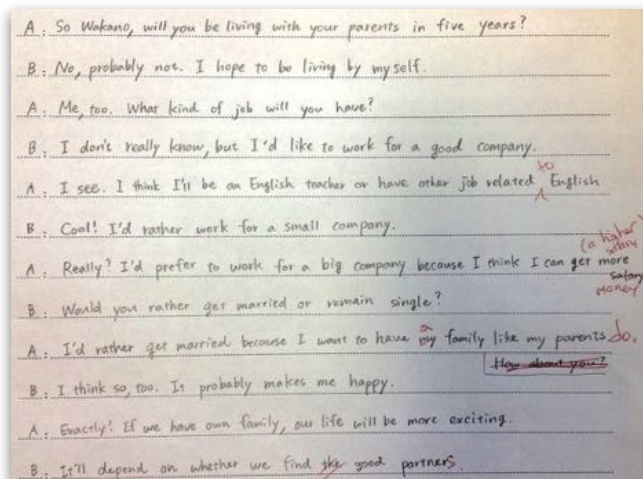 A: So Wakano, will you be living with your parents in five years?
B: No, probably not. I hope to be living by myself.
A: Me, too. What kind of job will you have?
B: I don't really know, but I'd like to work for a good company.
to
A: I see. I think I'll be an English teacher or have other job related English
B: Cool! I'd rather work for a small company.
(a higher salary
A: Really? I'd prefer to work for a big company because I think I can get more
salary
money
B: Would you rather get married or remain single?
a
A: I'd rather get married because I want to have my family like my parents do.
How about you?
B: I think so, too. It probably makes me happy.
A: Exactly! If we have own family, our life will be more exciting.
B: It'll depend on whether we find the good partners.